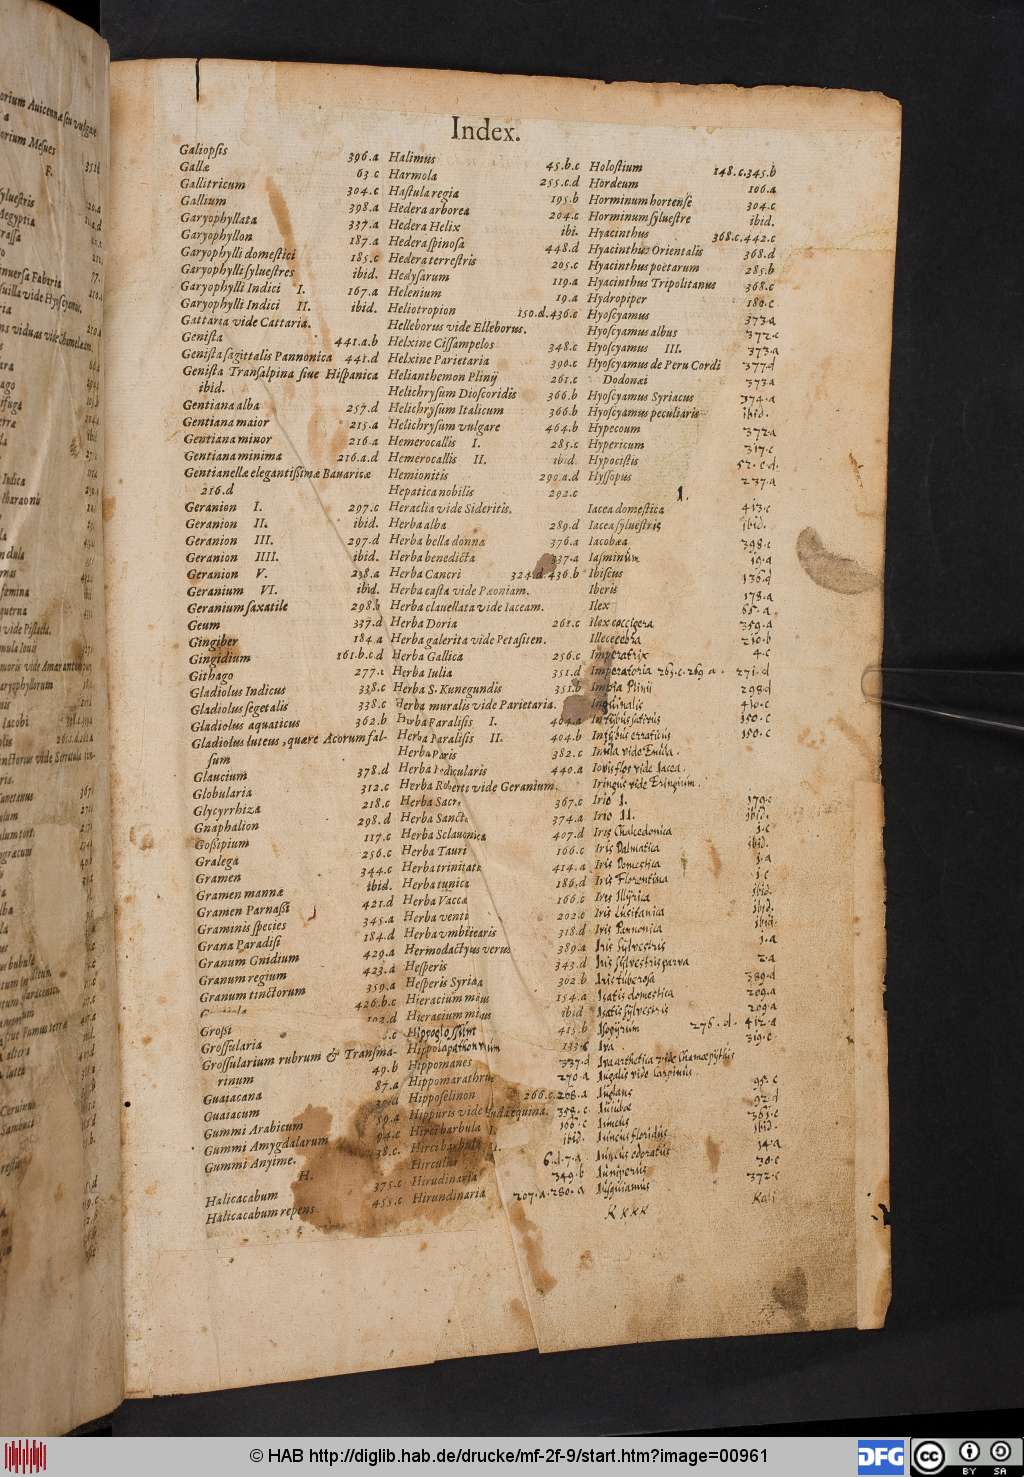 Index.
Galiopsis 396.a
Gallæ 63 c
Gallitricum 304.c
Gallium 398.a
Garyophyllata 337.a
Garyophyllon 187.a
Garyophylli domestici 185.c
Garyophylli syluestres ibid.
Garyophylli Indici I. 167.a
Garyophylli Indici II. ibid.
Gattaria vide Cattaria.
Genista 441.a.b
Genista sagittalis Pannonica 441.d
Genista Transalpina siue Hispanica
ibid.
Gentiana alba 257.d
Gentiana maior 215.a
Gentiana minor 216.a
Gentiana minima 216.a.d
Gentianellæ elegantissimæ Bauaricæ
216.d
Geranion I. 297.c
Geranion II. ibid.
Geranion III. 297.d
Geranion IIII. ibid.
Geranion V. 298.a
Geranium VI. ibid.
Geranium saxatile 298.b
Geum 337.d
Gingiber 184.a
Gingidium 161.b.c.d
Githago 277.c
Gladiolus Indicus 338.c
Gladiolus segetalis 338.c
Gladiolus aquaticus 362.b
Gladiolus luteus, quære Acorum fal-
sum
Glaucium 378.d
Globularia 312.c
Glycyrrhiza 218.c
Gnaphalion 298.d
Gossipium 117.c
Gralega 256.c
Gramen 344.c
Gramen mannæ ibid.
Gramen Parnassi 421.d
Graminis species 345.a
Grana Paradisi 184.d
Granum Gnidium 429.a
Granum regium 423.a
Granum tinctorum 359.a
426.b.c
Grossi
Grossularia
Grossularium rubrum & Transma-
rinum 49.b
Guaiacana 87.a
Guaiacum
Gummi Arabicum 59.a
Gummi Amygdalarum 94.c
Gummi Anyime. 38.c.
H.
Halicacabum 375.c
Halicacabum repens 455.c
Halimus 45.b.c
Harmola 255.c.d
Hastula regia 195.b
Hedera arborea 204.c
Hedera Helix ibi.
Hedera spinosa 448.d
Hedera terrestris 205.c
Hedysarum 119.a
Helenium 19.a
Heliotropion 150.d.436.c
Helleborus vide Elleborus.
Helxine Cissampelos 348.c
Helxine Parietaria 390.c
Helianthemon Plinij 261.c
Helichrysum Dioscoridis 366.b
Helichrysum Italicum 366.b
Helichrysum vulgare 464.b
Hemerocallis I. 285.c
Hemerocallis II. ibid.
Hemionitis 290.a.d
Hepatica nobilis 292.c
Heraclia vide Sideritis.
Herba alba 289.d
Herba bella donna 376.a
Herba benedicta 337.a
Herba Cancri 324.d.436.b
Herba casta vide Pæoniam.
Herba clauellata vide Iaceam.
Herba Doria 261.c
Herba galerita vide Petasiten.
Herba Gallica 256.c
Herba Iulia 351.d
Herba S. Kunegundis 351.b
Herba muralis vide Parietaria.
Herba Paralisis I. 404.a
Herba Paralisis II. 404.b
Herba Paris 382.c
Herba Pedicularis 440.a
Herba Roberti vide Geranium.
Herba Sacra 367.c
Herba Sancta 374.a
Herba Sclauonica 407.d
Herba Tauri 166.c
Herba trinitatis 414.a
Herba tunica 186.d
Herba Vacca 166.c
Herba venti 202.c
Herba vmbticaris 318.d
Hermodactylus verus 389.a
Hesperis 343.d
Hesperis Syriaca 302.b
Hieracium maius 154.a
Hieracium minus ibid
Hippoglossum 415.b
Hippolapathon 133.c
Hippomanes 337.d
Hippomarathrum 270.a
Hipposelinon 266.c.268.a
Hippuris vide Caudaequina. 358.c
Hirci barbula I. 106.c
Hirci barbula II. ibid.
Hirculus 6.d.7.a
Hirudinaria 349.b
Hirundinaria 207.a.280.a
Holostium 148.c.345.b
Hordeum 106.a
Horminum hortense 304.c
Horminum syluestre ibid.
Hyacinthus 368.c.442.c
Hyacinthus Orientalis 368.d
Hyacinthus poetarum 285.b
Hyacinthus Tripolitanus 368.c
Hydropiper 180.c
Hyoscyamus 373.a
Hyoscyamus albus 372.c
Hyoscyamus III. 373.a
Hyoscyamus de Peru Cordi 377.d
Dodonæi 373.a
Hyoscyamus Syriacus 374.a
Hyoscyamus peculiaris ibid.
Hypecoum 372.a
Hypericum 317.c
Hypocistis 52.c.d.
Hyssopus 237.a
I.
Iacea domestica 413.c
Iacea syluestris ibid.
Iacobæa 398.c
Iasminum 10.a
Ibiscus 136.d
Iberis 178.a
Ilex 65.a
Ilex coccigera 359.a
Illecebra 210.b
Imperatrix 4.c
Imperatoria 263.c.269.a. 271.d
Impia Plinii 298.d
Inguinalis 410.c
Intybus sativus 150.c
Intybus erraticus 150.c
Inula vide Enula.
Iovis flos vide Iacea.
Iringus vide Eringium.
Irio I. 179.c
Irio II. ibid.
Iris Chalcedonica 1.c
Iris Dalmatica ibid.
Iris Domestica 1.a
Iris Florentina 1.c
Iris Illÿrica ibid.
Iris Lusitanica ibid.
Iris Pannonica ibid.
Iris Sÿlvestris 1.a
Iris Sÿlvestris parva 2.a
Iris tuberosa 389.d
Isatis domestica 209.a
Isatis sÿlvestris 209.a
Isopÿrum 276.d. 412.a
Iva 319.c
Iva arthetica vide Chamæpÿthÿs
Iugalis vide Carpinus.
Iuglans 95.c
Iuiubæ 92.d
Iuncus 361.c
Iuncus floridus ibid.
Iuncus odoratus 14.a
Iuniperus 30.c
Iusquiamus 372.c
K k k k
Kali
© HAB http://diglib.hab.de/drucke/mf-2f-9/start.htm?image=00961
DFG
cc
BY SA